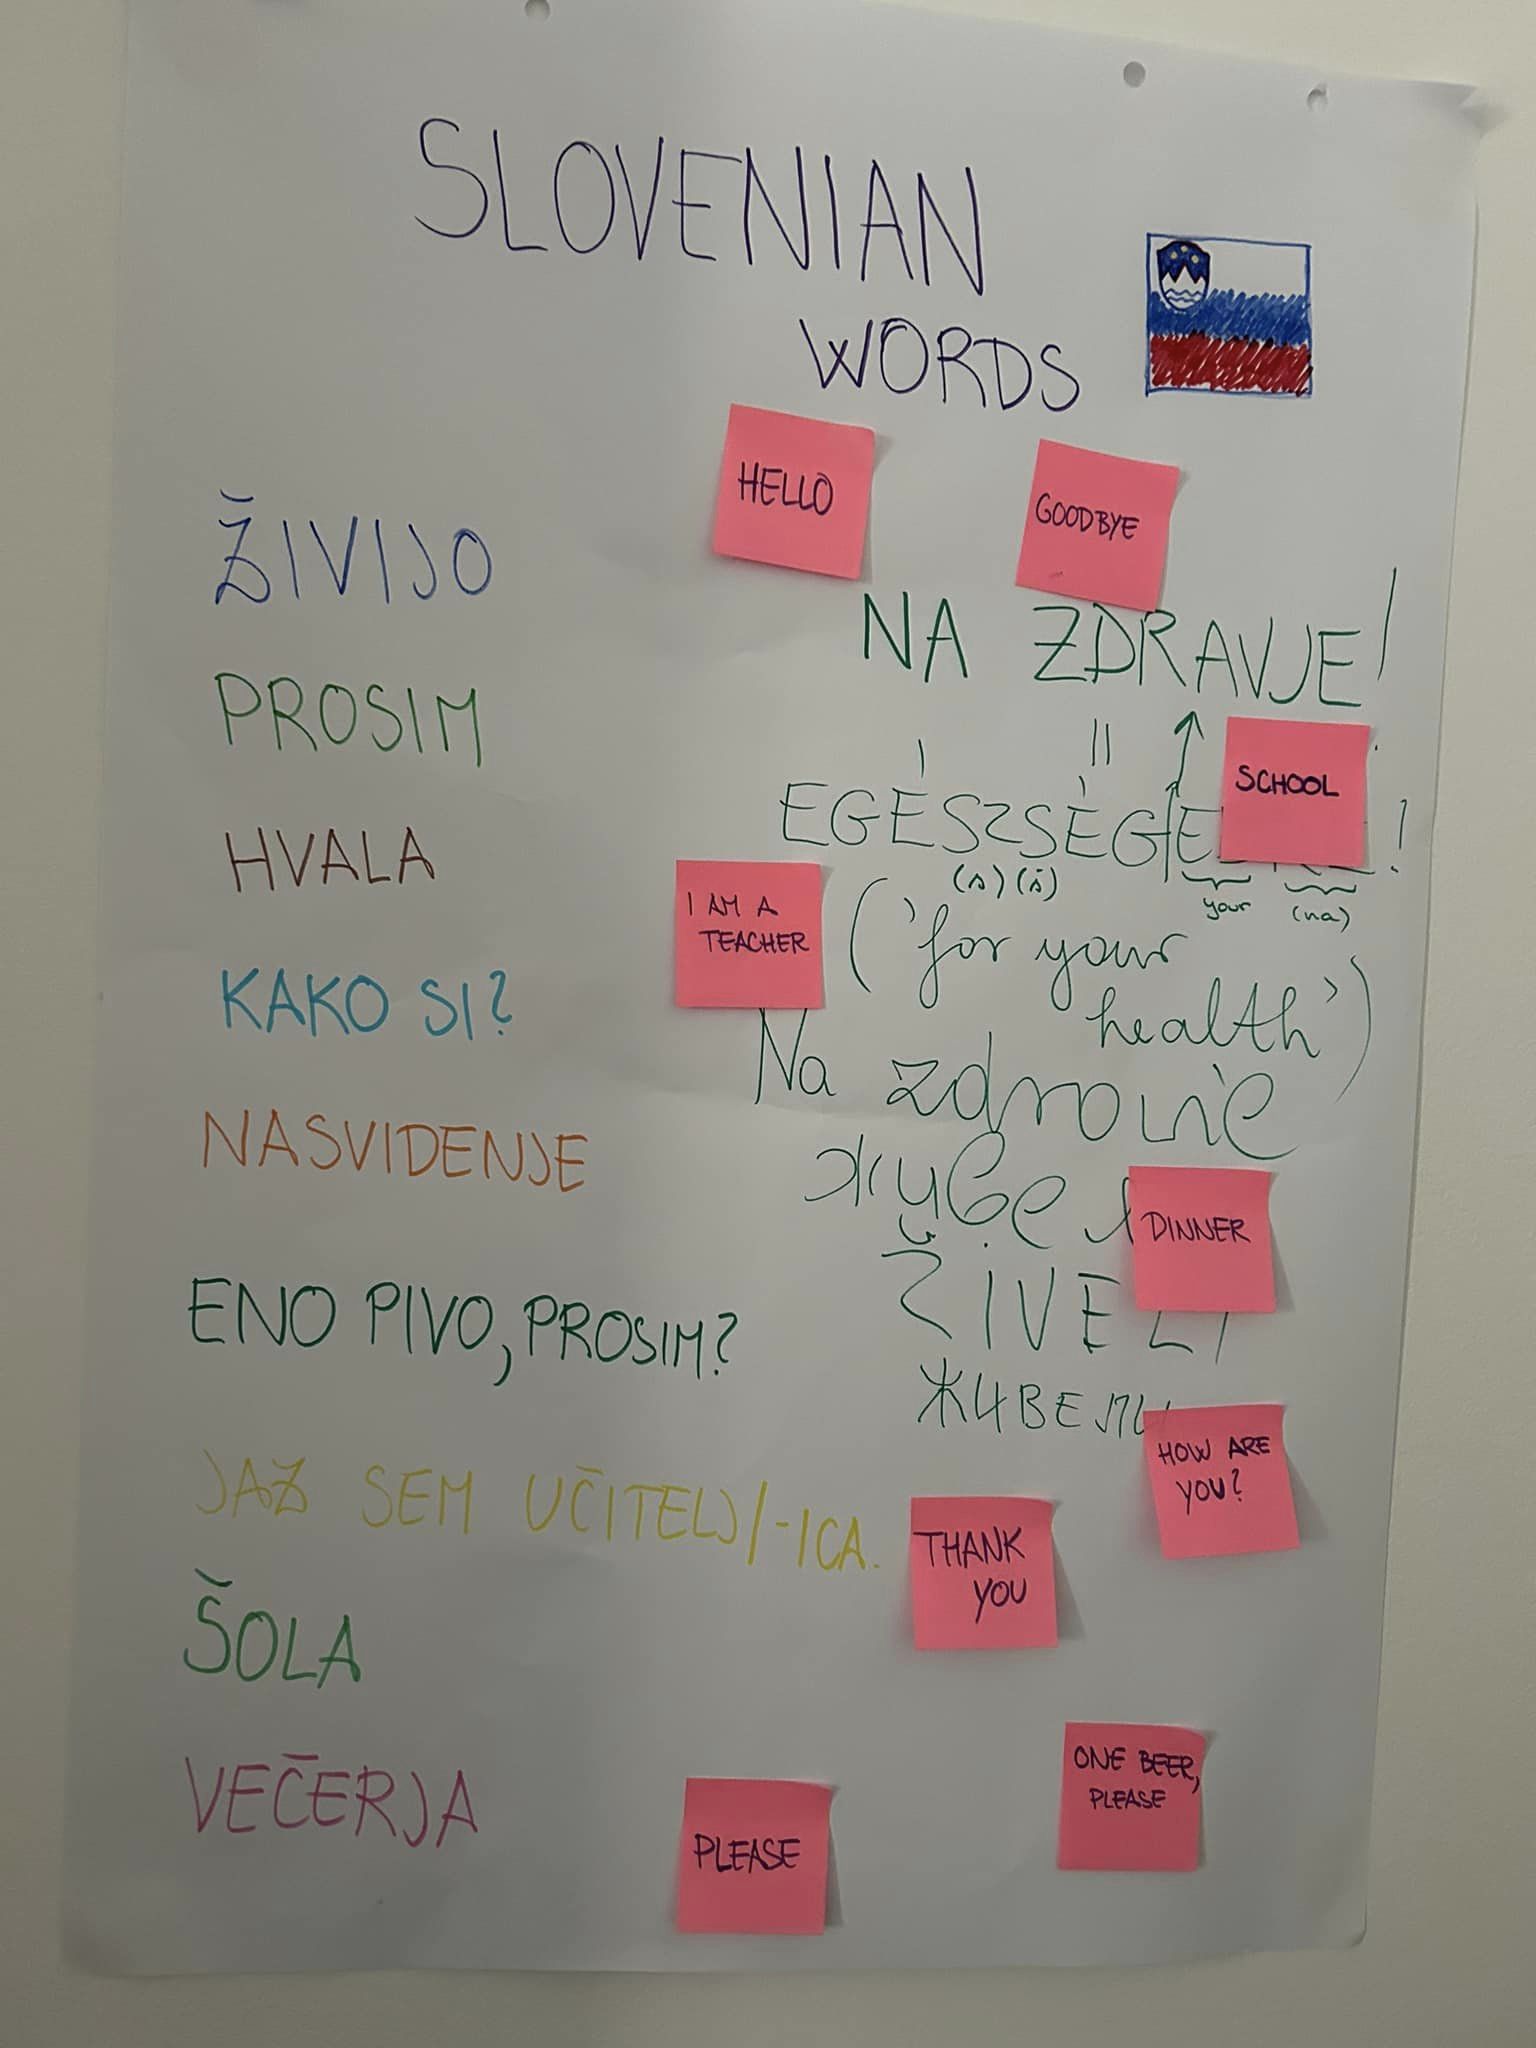 SLOVENIAN
WORDS
HELLO
GOODBYE
ŽIVIJO
NA ZDRAVJE!
PROSIM
SCHOOL
!
(s) (š)
your
(na)
HVALA
I AM A
TEACHER
('for your
health')
KAKO SI?
Na zdrowie
NASVIDENJE
DINNER
ENO PIVO, PROSIM?
HOW ARE
YOU?
JAZ SEM UČITELJ/-ICA.
THANK
YOU
ŠOLA
VEČERJA
ONE BEER,
PLEASE
PLEASE